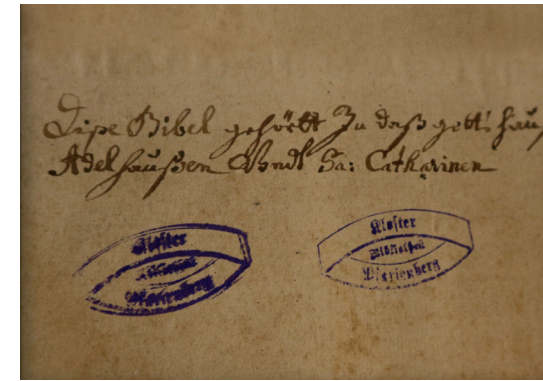 Dise Bibel gehörtt In daß gotts hauß
Adelhaußen Vndt Sa: Catharinen
Kloster
Bibliothek
Marienberg
Kloster
Bibliothek
Marienberg